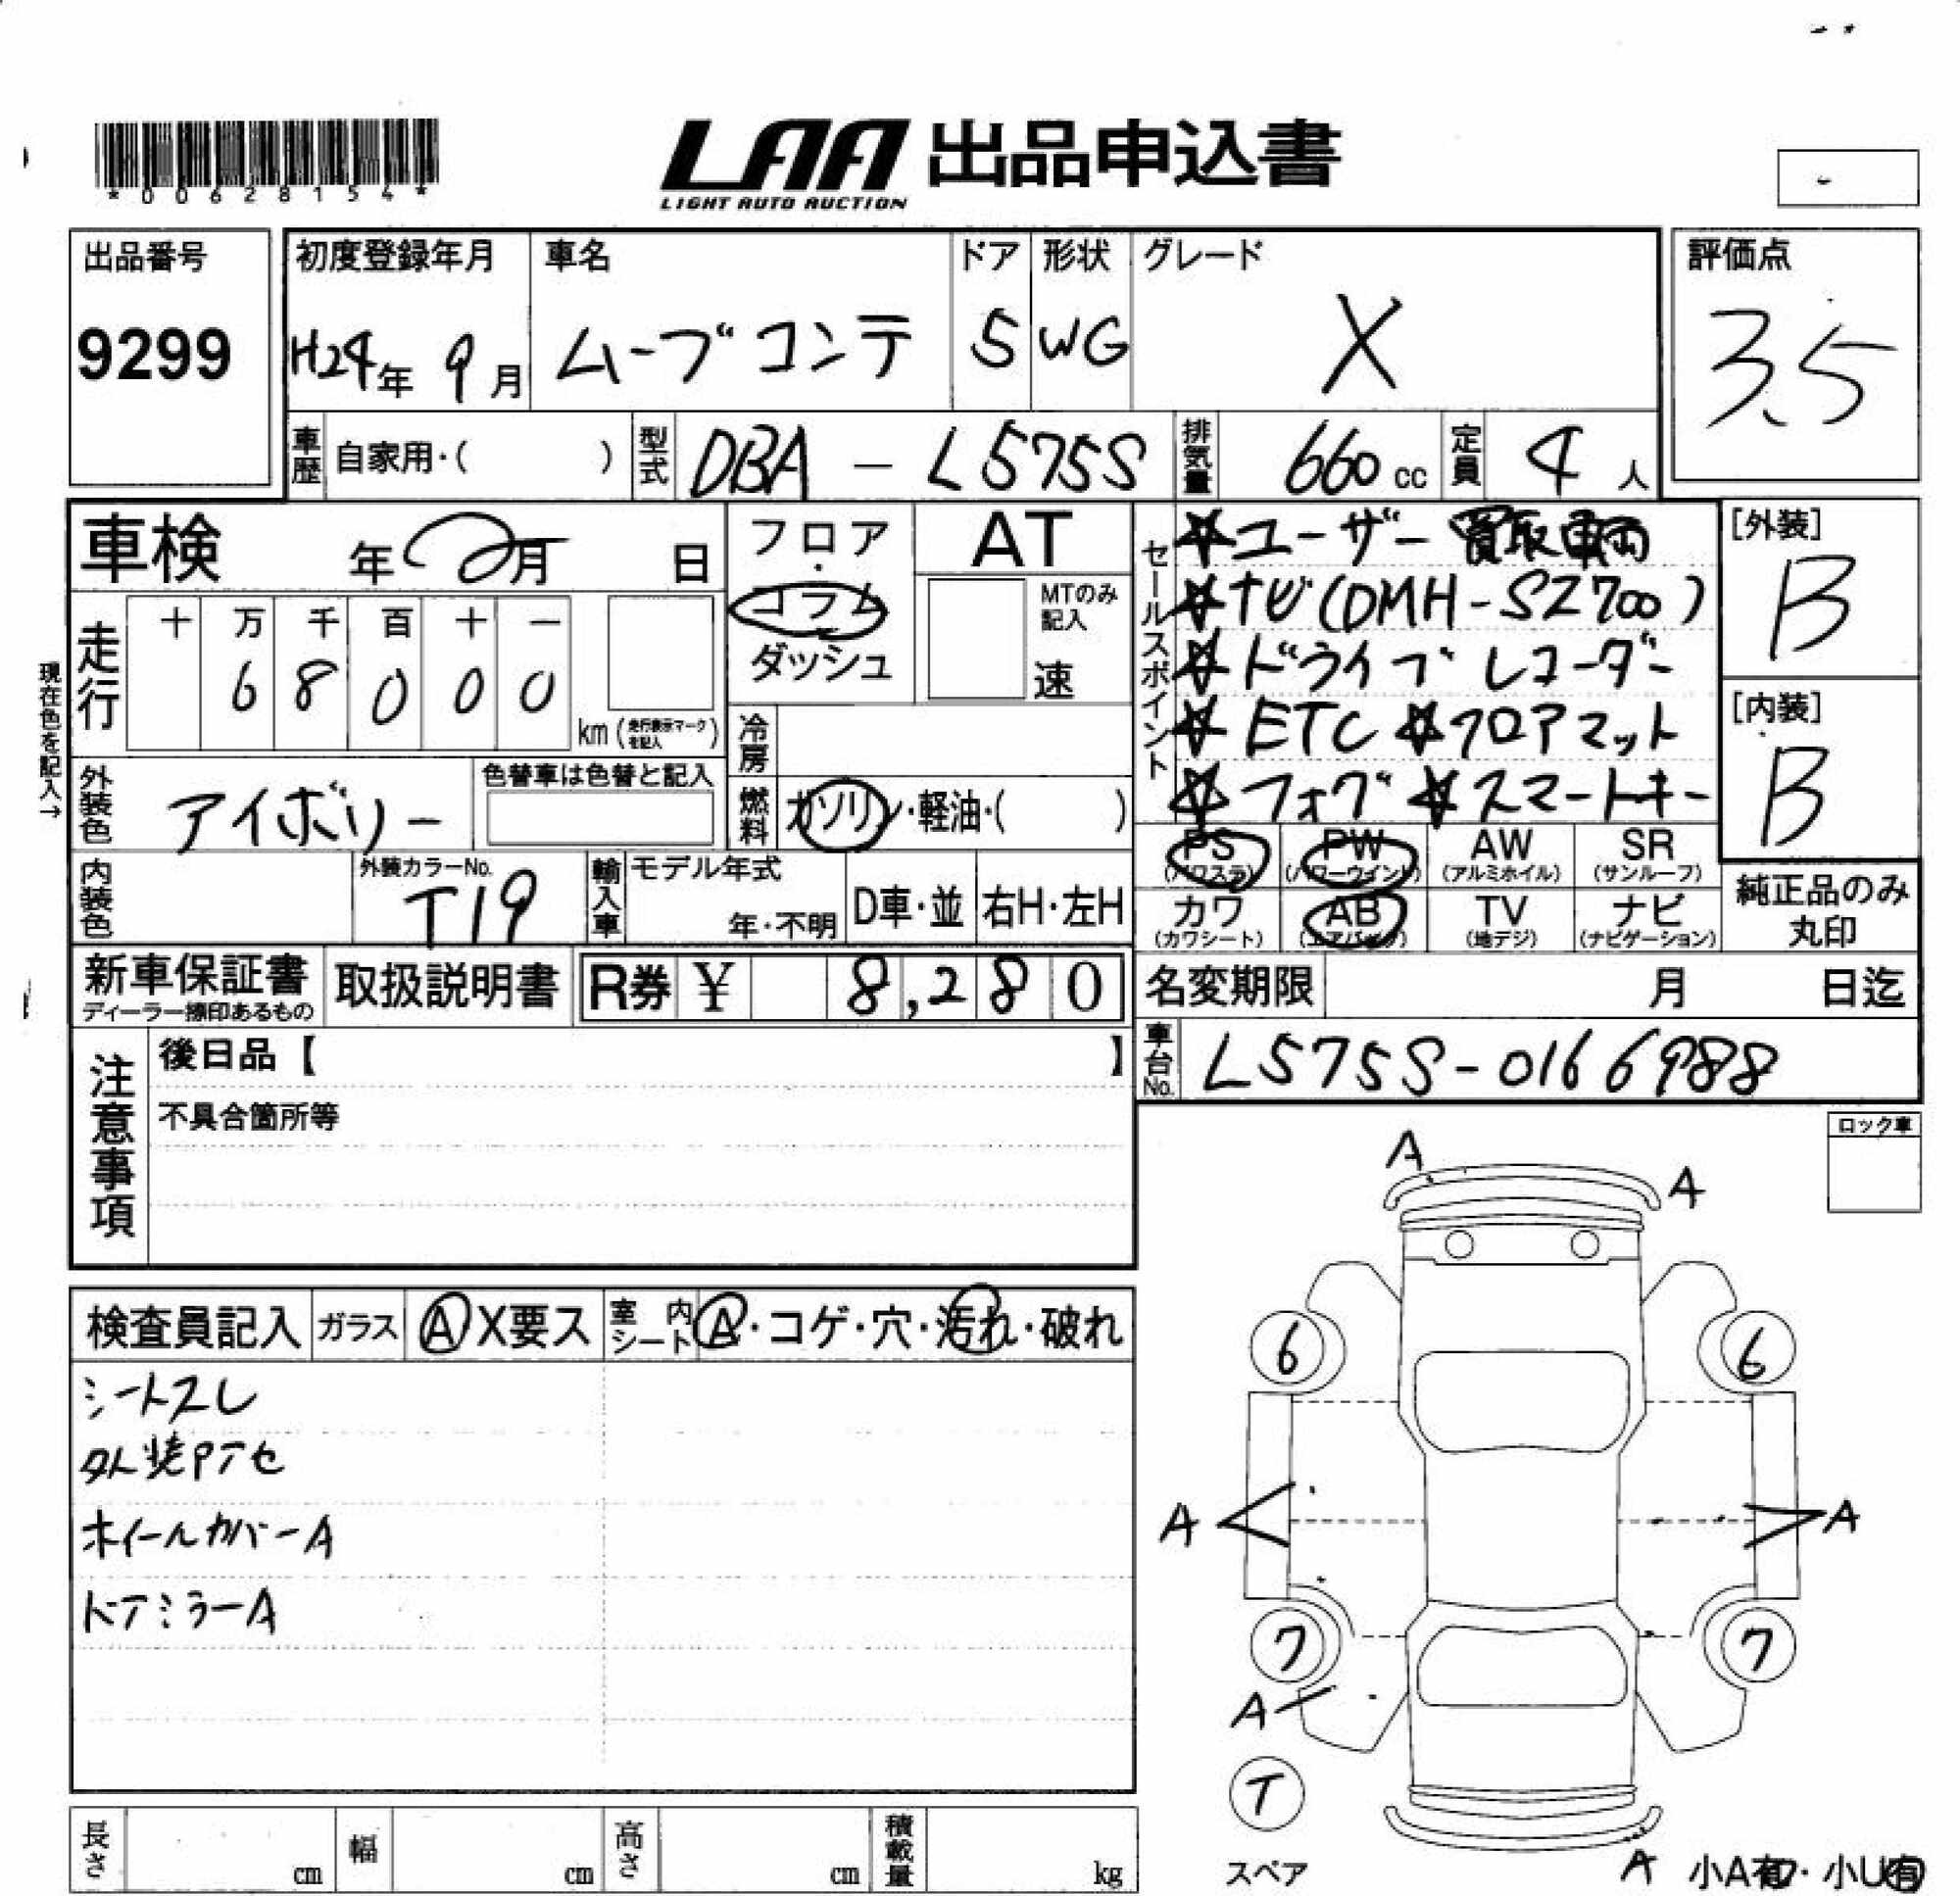 *00628154*
LAA 出品申込書
LIGHT AUTO AUCTION
出品番号
9299
初度登録年月
H24年 9月
車名
ムーブコンテ
ドア
5
形状
WG
グレード
X
評価点
3.5
車歴 自家用・( )
型式 DBA - L575S
排気量 660 cc
定員 4 人
車検 年 月 日
フロア・コラム
ダッシュ
AT
MTのみ記入
速
走行
十 万 千 百 十 一
6 8 0 0 0
km(走行表示マークを記入)
現在色を記入→
外装色 アイボリー
色替車は色替と記入
冷房
燃料 ガソリン・軽油・( )
内装色
外装カラーNo.
T19
輸入車
モデル年式
年・不明
D車・並
右H・左H
セールスポイント
☆ユーザー買取車両
☆ナビ(DMH-SZ700)
☆ドライブレコーダー
☆ETC ☆フロアマット
☆フォグ ☆スマートキー
[外装]
B
[内装]
B
PS (パワステ)
PW (パワーウインドウ)
AW (アルミホイル)
SR (サンルーフ)
カワ (カワシート)
AB (エアバッグ)
TV (地デジ)
ナビ (ナビゲーション)
純正品のみ
丸印
新車保証書
ディーラー捺印あるもの
取扱説明書
R券 ¥ 8,280
名変期限 月 日迄
車台No. L575S-0166988
注意事項
後日品【 】
不具合箇所等
ロック車
検査員記入
ガラス A X要ス
室内シート A・コゲ・穴・汚れ・破れ
シートスレ
外装Pアセ
ホイールカバーA
ドアミラーA
A
A
6
6
A
A
7
7
A
T
スペア
A
小A有・小U有
長さ cm
幅 cm
高さ cm
積載量 kg